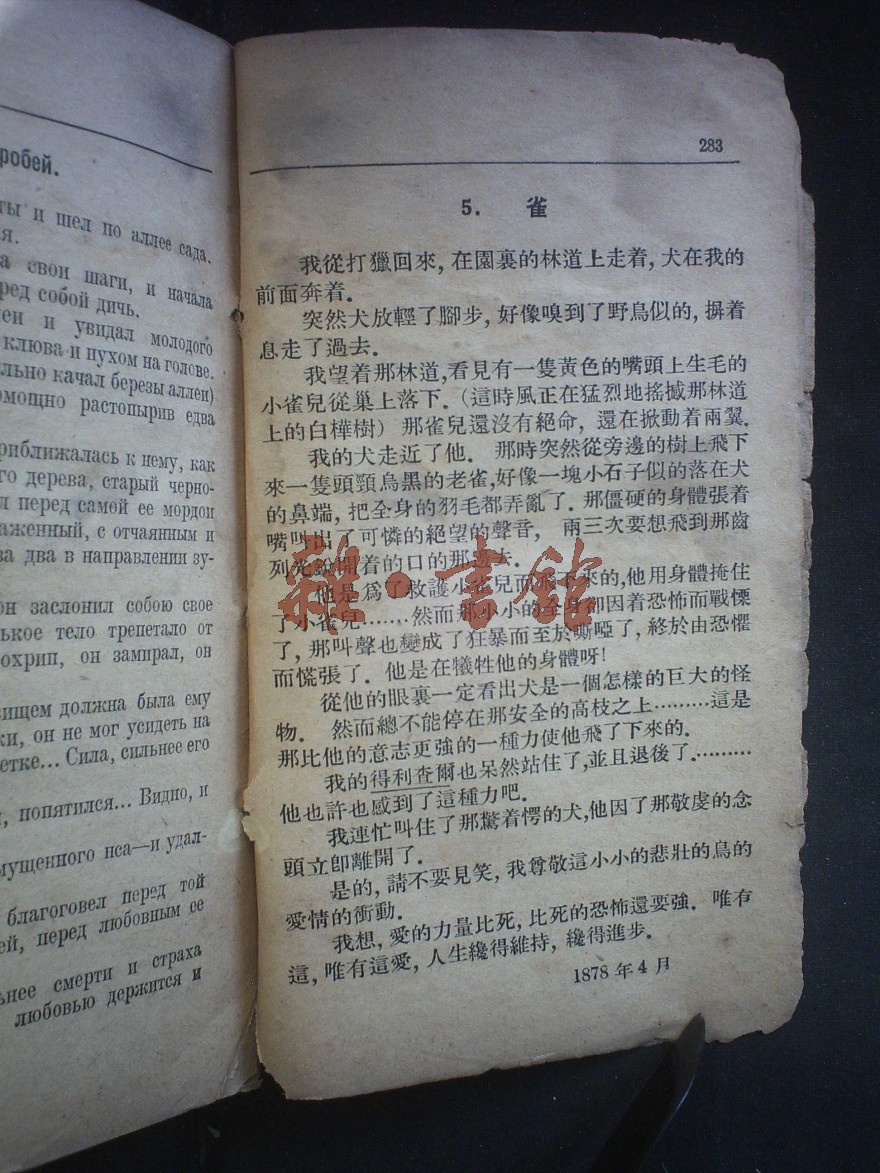 робей.
ты и шел по аллее сада.
я.
а свои шаги, и начала
ред собой дичь.
еи и увидал молодого
клюва и пухом на голове.
льно качал березы аллеи)
омощно растопырив едва
риближалась к нему, как
го дерева, старый черно-
л перед самой ее мордой
аженный, с отчаянным и
за два в направлении зу-
он заслонил собою свое
нькое тело трепетало от
охрип, он замирал, он
вищем должна была ему
ки, он не мог усидеть на
етке... Сила, сильнее его
, попятился... Видно, и
мущенного пса—и удал-
благоговел перед той
ей, перед любовным ее
ьнее смерти и страха
любовью держится и
283
5. 雀
我從打獵回來, 在園裏的林道上走着, 犬在我的
前面奔着.
突然犬放輕了腳步, 好像嗅到了野鳥似的, 摒着
息走了過去.
我望着那林道, 看見有一隻黃色的嘴頭上生毛的
小雀兒從巢上落下. (這時風正在猛烈地搖撼那林道
上的白樺樹) 那雀兒還沒有絕命, 還在掀動着兩翼.
我的犬走近了他. 那時突然從旁邊的樹上飛下
來一隻頭頸烏黑的老雀, 好像一塊小石子似的落在犬
的鼻端, 把全身的羽毛都弄亂了. 那僵硬的身體張着
嘴叫出了可憐的絕望的聲音, 兩三次要想飛到那齒
列 開着的口的那邊去.
他是爲了救護小雀兒而飛下來的, 他用身體掩住
了小雀兒……然而那小小的全身卻因着恐怖而戰慄
了, 那叫聲也變成了狂暴而至於嘶啞了, 終於由恐懼
而慌張了. 他是在犧牲他的身體呀!
從他的眼裏一定看出犬是一個怎樣的巨大的怪
物. 然而總不能停在那安全的高枝之上………這是
那比他的意志更強的一種力使他飛了下來的.
我的得利查爾也呆然站住了, 並且退後了.………
他也許也感到了這種力吧.
我連忙叫住了那驚着愕的犬, 他因了那敬虔的念
頭立卽離開了.
是的, 請不要見笑, 我尊敬這小小的悲壯的鳥的
愛情的衝動.
我想, 愛的力量比死, 比死的恐怖還要強. 唯有
這, 唯有這愛, 人生纔得維持, 纔得進步.
1878 年 4 月
雜·書館